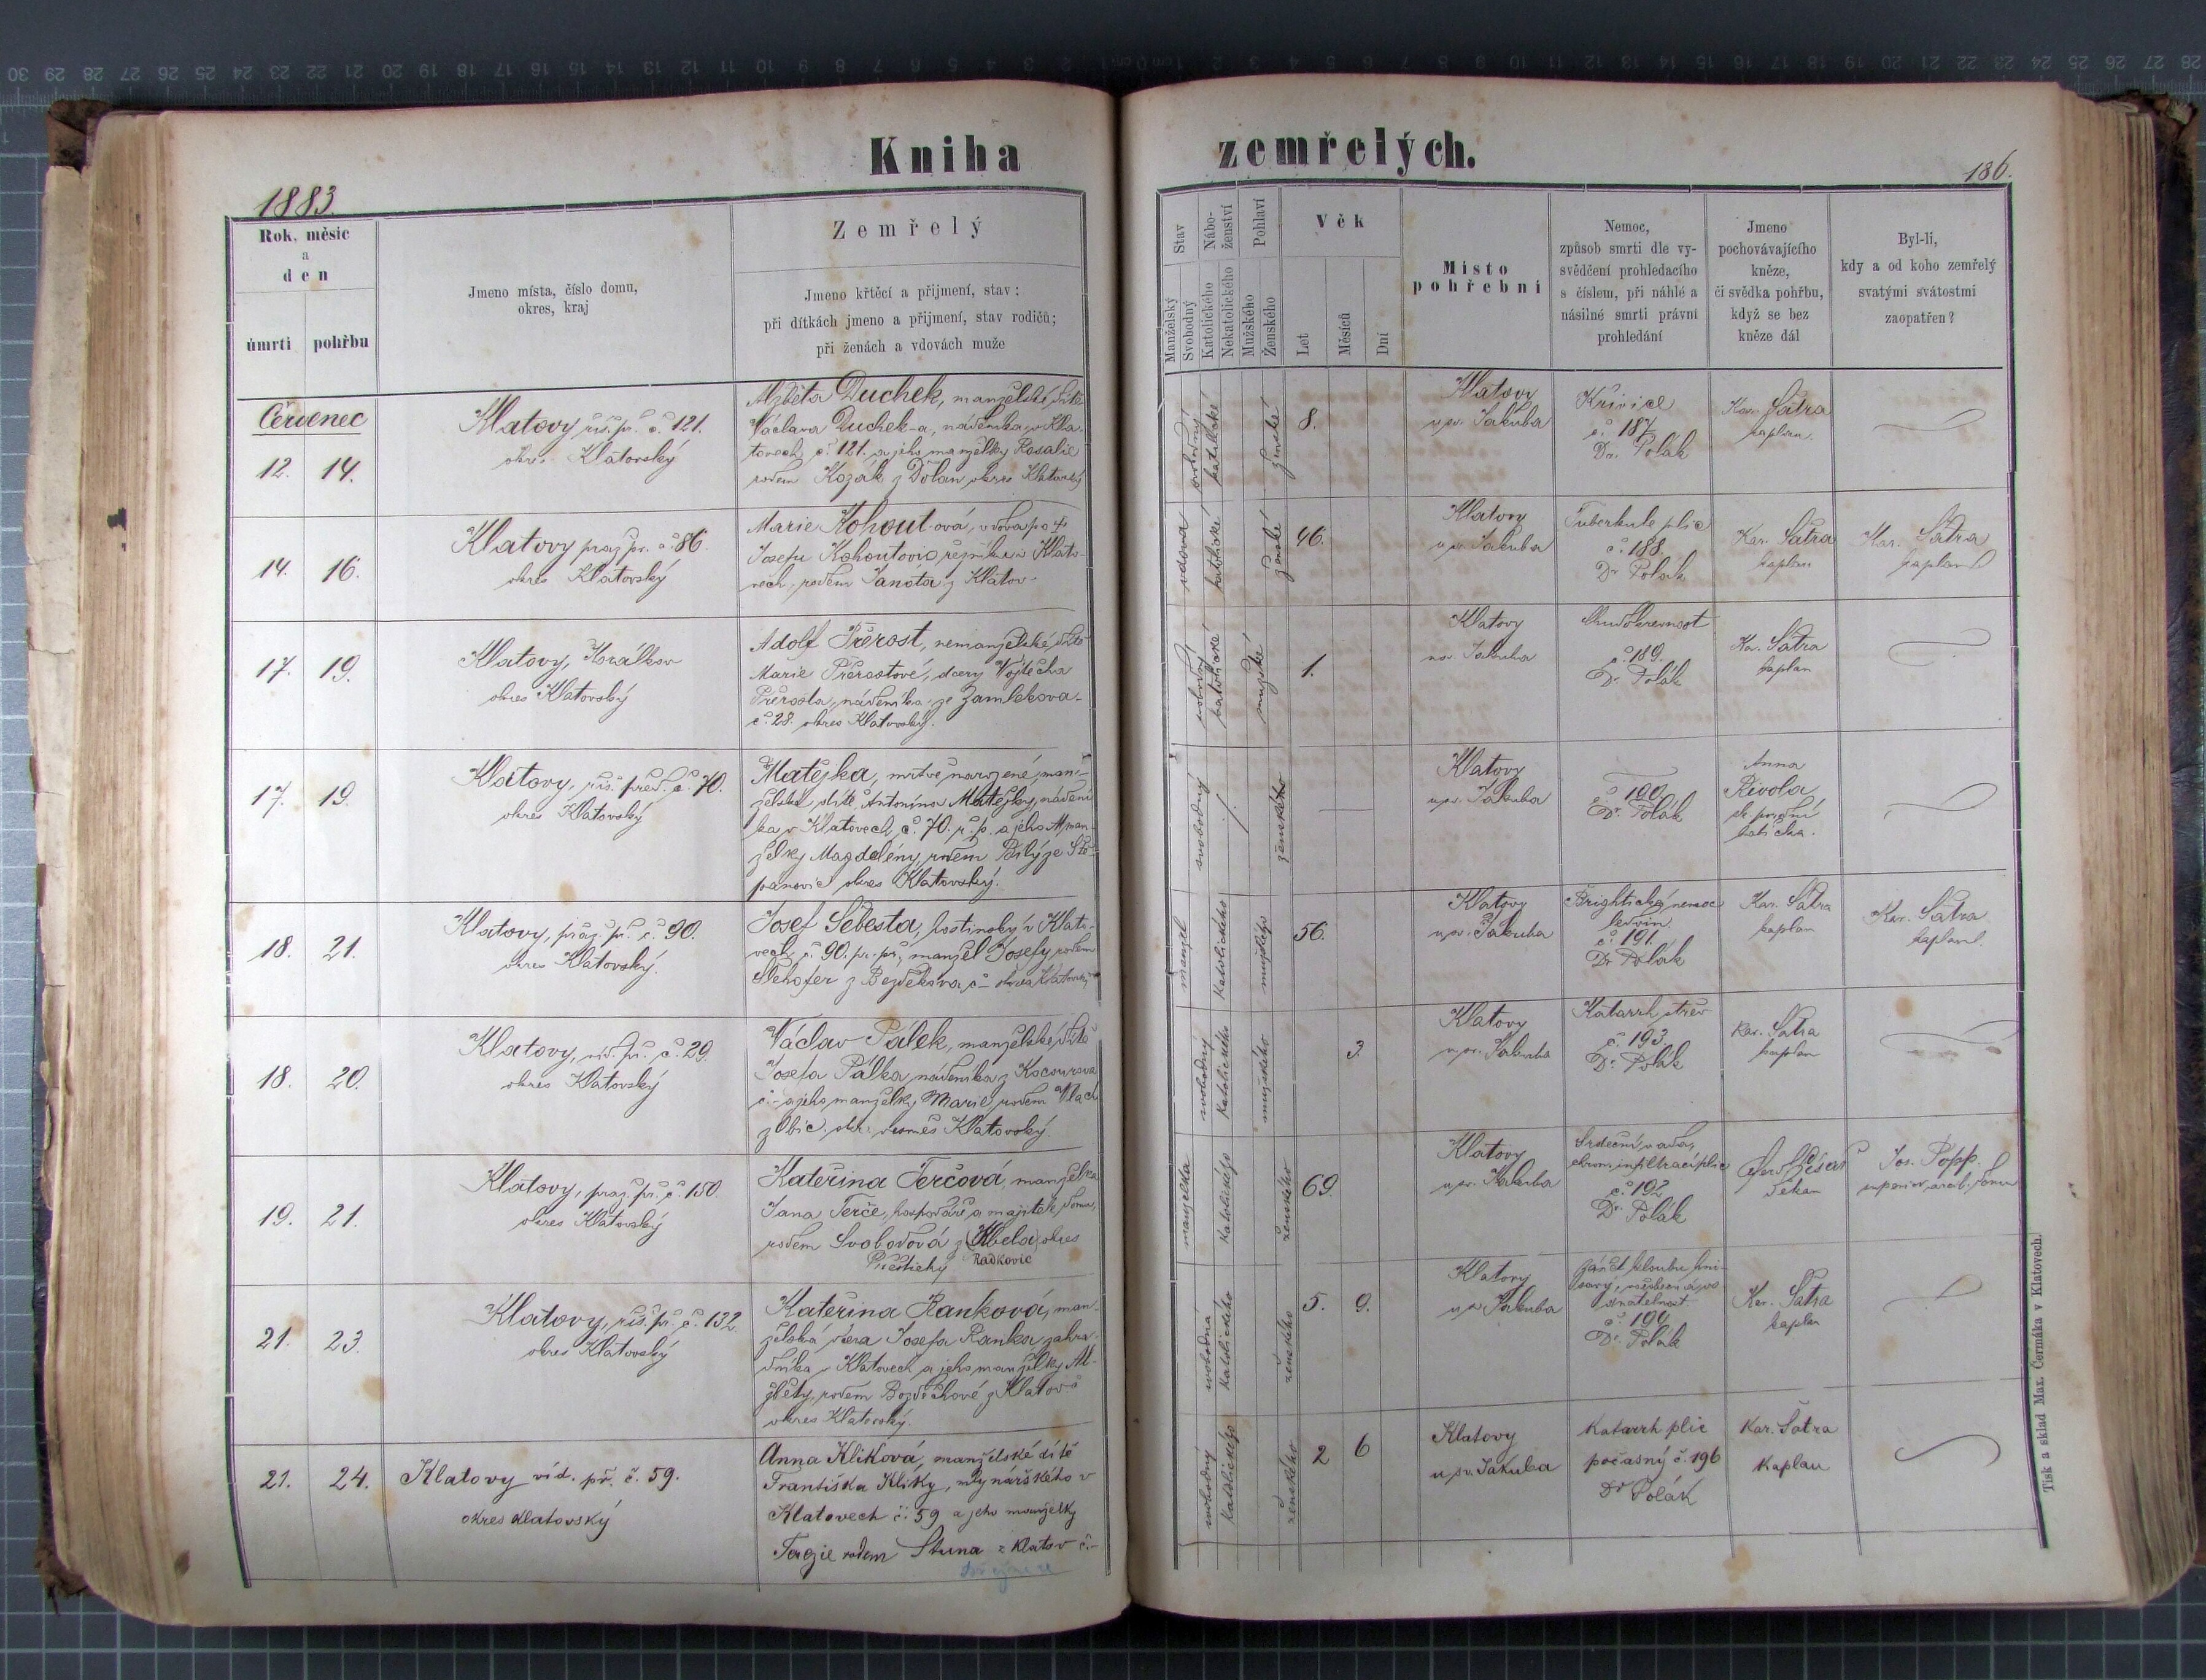 Kniha zemřelých.
1883.
186.
Rok, měsíc
a
den
úmrtí pohřbu
Jmeno místa, číslo domu,
okres, kraj
Zemřelý
Jmeno křtěcí a přijmení, stav;
při dítkách jmeno a přijmení, stav rodičů;
při ženách a vdovách muže
Stav
Manželský
Svobodný
Nábo-
ženství
Katolického
Nekatolického
Pohlaví
Mužského
Ženského
Věk
Let
Měsíců
Dní
Místo
pohřební
Nemoc,
způsob smrti dle vy-
svědčení prohledacího
s číslem, při náhlé a
násilné smrti právní
prohledání
Jmeno
pochovávajícího
kněze,
či svědka pohřbu,
když se bez
kněze dál
Byl-li,
kdy a od koho zemřelý
svatými svátostmi
zaopatřen?
Červenec
12. 14.
Klatovy říš. př. č. 121.
okres Klatovský
Alžběta Duchek, manželské dítě
Václava Duchek-a, nádeníka v Kla-
tovech č. 121. a jeho manželky Rosalie
rodem Kozák z Dolan okres Klatovský
svobodný
katolické
ženské
8.
Klatovy
u sv. Jakuba
Křivice
č. 187
Dr. Polák
Kar. Šatra
kaplan.
14. 16.
Klatovy praž. př. č. 86.
okres Klatovský
Marie Kohout-ová, vdova po †
Josefu Kohoutovi, řezníku v Klato-
vech, rodem Janota z Klatov
vdova
katolické
ženské
46.
Klatovy
u sv. Jakuba
Tuberkule plic
č. 188.
Dr Polák
Kar. Šatra
kaplan
Kar. Šatra
kaplan
17. 19.
Klatovy, Korálkov
okres Klatovský
Adolf Přerost, nemanželské dítě
Marie Přerostové, dcery Vojtěcha
Přerosta, nádeníka ze Zamlekova
č. 28. okres Klatovský.
svobodný
katolické
mužské
1.
Klatovy
u sv. Jakuba
Chudokrevnost
č. 189.
Dr. Polák
Kar. Šatra
kaplan
17. 19.
Klatovy, říš. před. č. 70.
okres Klatovský
Matějka, mrtvě narozené, man-
želské dítě Antonína Matějky, nádení-
ka v Klatovech č. 70. ř. p. a jeho man-
želky Magdalény, rodem Bílý ze Ště-
panovic okres Klatovský.
svobodný
ženského
Klatovy
u sv. Jakuba
č. 190.
Dr. Polák
Anna
Rivola
babička.
18. 21.
Klatovy, praž. př. č. 90.
okres Klatovský.
Josef Šebesta, hostinský v Klato-
vech č. 90. pr. př., manžel Josefy, rodem
z Bezděkova č - okres Klatovský
manžel
katolického
mužského
56.
Klatovy
u sv. Jakuba
Brightická nemoc
ledvin.
č. 191.
Dr Polák
Kar. Šatra
kaplan
Kar. Šatra
kaplan.
18. 20.
Klatovy, víd. př. č. 29.
okres Klatovský
Václav Pálek, manželské dítě
Josefa Pálka, nádeníka z Kocourova
č. - a jeho manželky Marie, rodem Vlach
z Obic. okr. vesměs Klatovský.
svobodný
katolického
mužského
3.
Klatovy
u sv. Jakuba
Katarrh střev
č. 193.
Dr. Polák
Kar. Šatra
kaplan
19. 21.
Klatovy, praž. př. č. 150.
okres Klatovský
Kateřina Terčová, manželka
Jana Terče, hospodáře a majitele domu,
rodem Svobodová z (Kbela) okres
Přeštický Radkovic
manželka
katolického
ženského
69.
Klatovy
u sv. Jakuba
Srdeční vada,
chron. infiltrací plic
č. 192
Dr. Polák
děkan
Jos. Popp.
21. 23.
Klatovy, říš. př. č. 132.
okres Klatovský
Kateřina Ranková, man-
želská dcera Josefa Ranka, zahra-
dníka v Klatovech a jeho manželky Al-
žběty, rodem Bozděchové z Klatov
okres Klatovský.
svobodná
katolického
ženského
5. 9.
Klatovy
u sv. Jakuba
Dr. Polák
Kar. Šatra
kaplan
21. 24.
Klatovy víd. př. č. 59.
okres Klatovský
Anna Kliková, manželské dítě
Františka Kliky, mlynářského v
Klatovech č: 59 a jeho manželky
rodem Stuna z Klatov č.-
svobodný
katolického
ženského
2 6
Klatovy
u sv. Jakuba
Katarrh plic
počasný č. 196
Dr Polák
Kar. Šatra
Kaplan
Tisk a sklad Max. Čermáka v Klatovech.